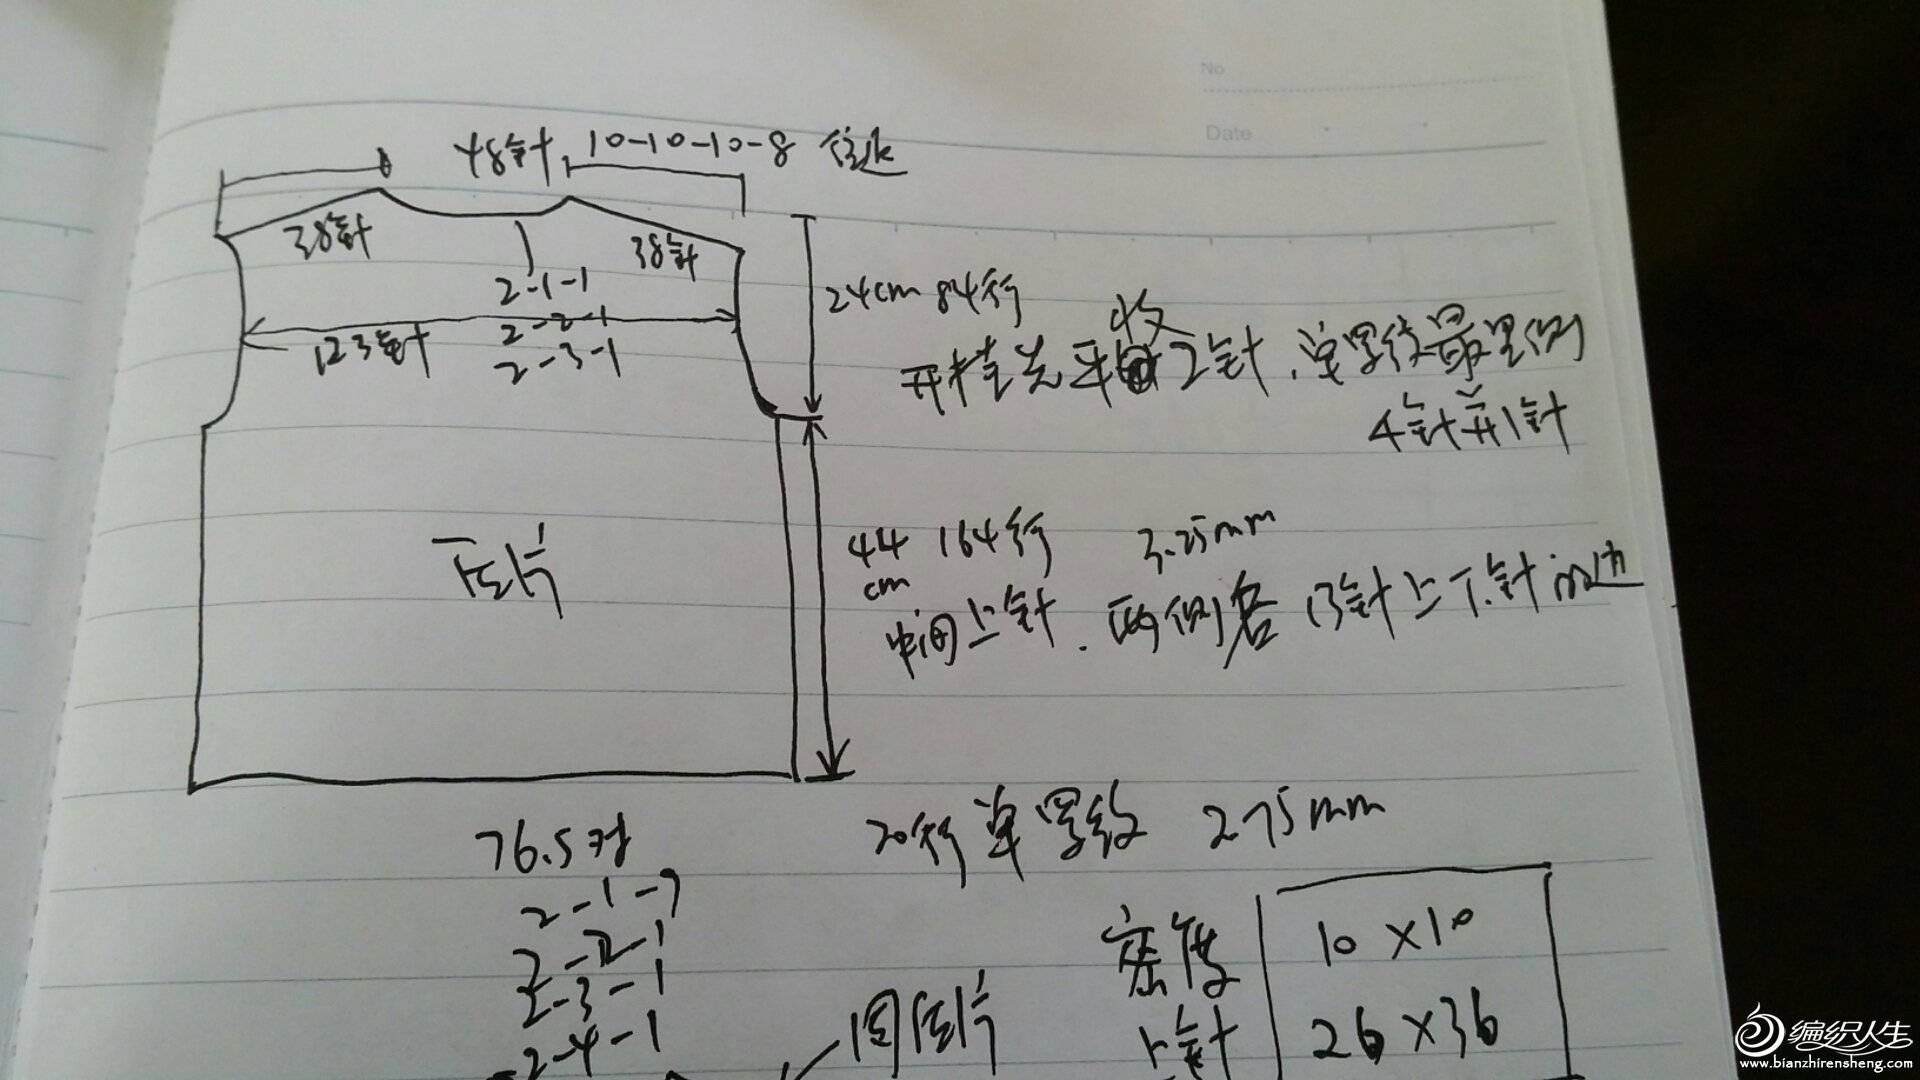 No
Date
48针 10-10-10-8 往返
38针
38针
2-1-1
2-2-1
2-3-1
123针
24cm 84行
开挂先平收2针.单罗纹最里侧
4针并1针
后片
44cm 164行 3.25mm
中间上针.两侧各13针上下针的边
76.5对
20行单罗纹 2.75mm
2-1-7
2-2-1
2-3-1
2-4-1
同后片
密度 10×10
上针 26×36
编织人生
www.bianzhirensheng.com